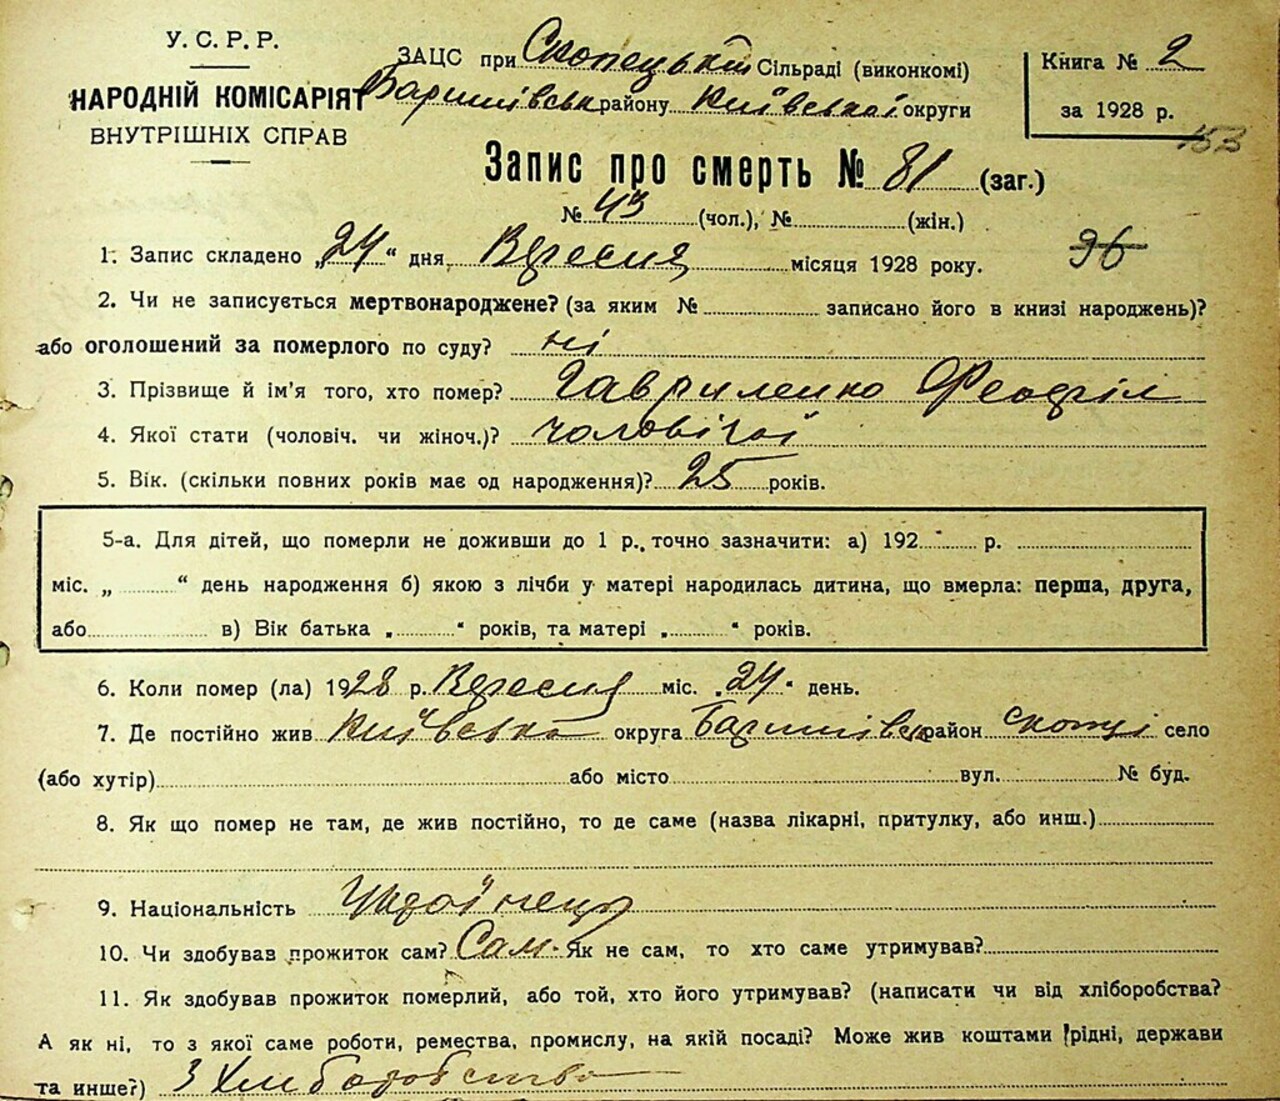 У. С. Р. Р.
НАРОДНІЙ КОМІСАРІЯТ
ВНУТРІШНІХ СПРАВ
ЗАЦС при Скопецькій Сільраді (виконкомі)
Баришівськ району Київської округи
Книга № 2
за 1928 р.
153
Запис про смерть № 81 (заг.)
№ 43 (чол.), № (жін.)
96
1. Запис складено „24“ дня Вересня місяця 1928 року.
2. Чи не записується мертвонароджене? (за яким № записано його в книзі народжень)?
або оголошений за померлого по суду? ні
3. Прізвище й ім'я того, хто помер? Гавриленко Феофіл
4. Якої стати (чоловіч. чи жіноч.)? чоловічої
5. Вік. (скільки повних років має од народження)? 25 років.
5-а. Для дітей, що померли не доживши до 1 р., точно зазначити: а) 192 р.
міс. „ “ день народження б) якою з лічби у матері народилась дитина, що вмерла: перша, друга,
або в) Вік батька „ “ років, та матері „ “ років.
6. Коли помер (ла) 1928 р. Вересня міс. „24“ день.
7. Де постійно жив Київська округа Баришівськ район Скопці село
(або хутір) або місто вул. № буд.
8. Як що помер не там, де жив постійно, то де саме (назва лікарні, притулку, або инш.)
9. Національність Українець
10. Чи здобував прожиток сам? Сам. Як не сам, то хто саме утримував?
11. Як здобував прожиток померлий, або той, хто його утримував? (написати чи від хліборобства?
А як ні, то з якої саме роботи, ремества, промислу, на якій посаді? Може жив коштами рідні, держави
та инше?) З Хліборобства